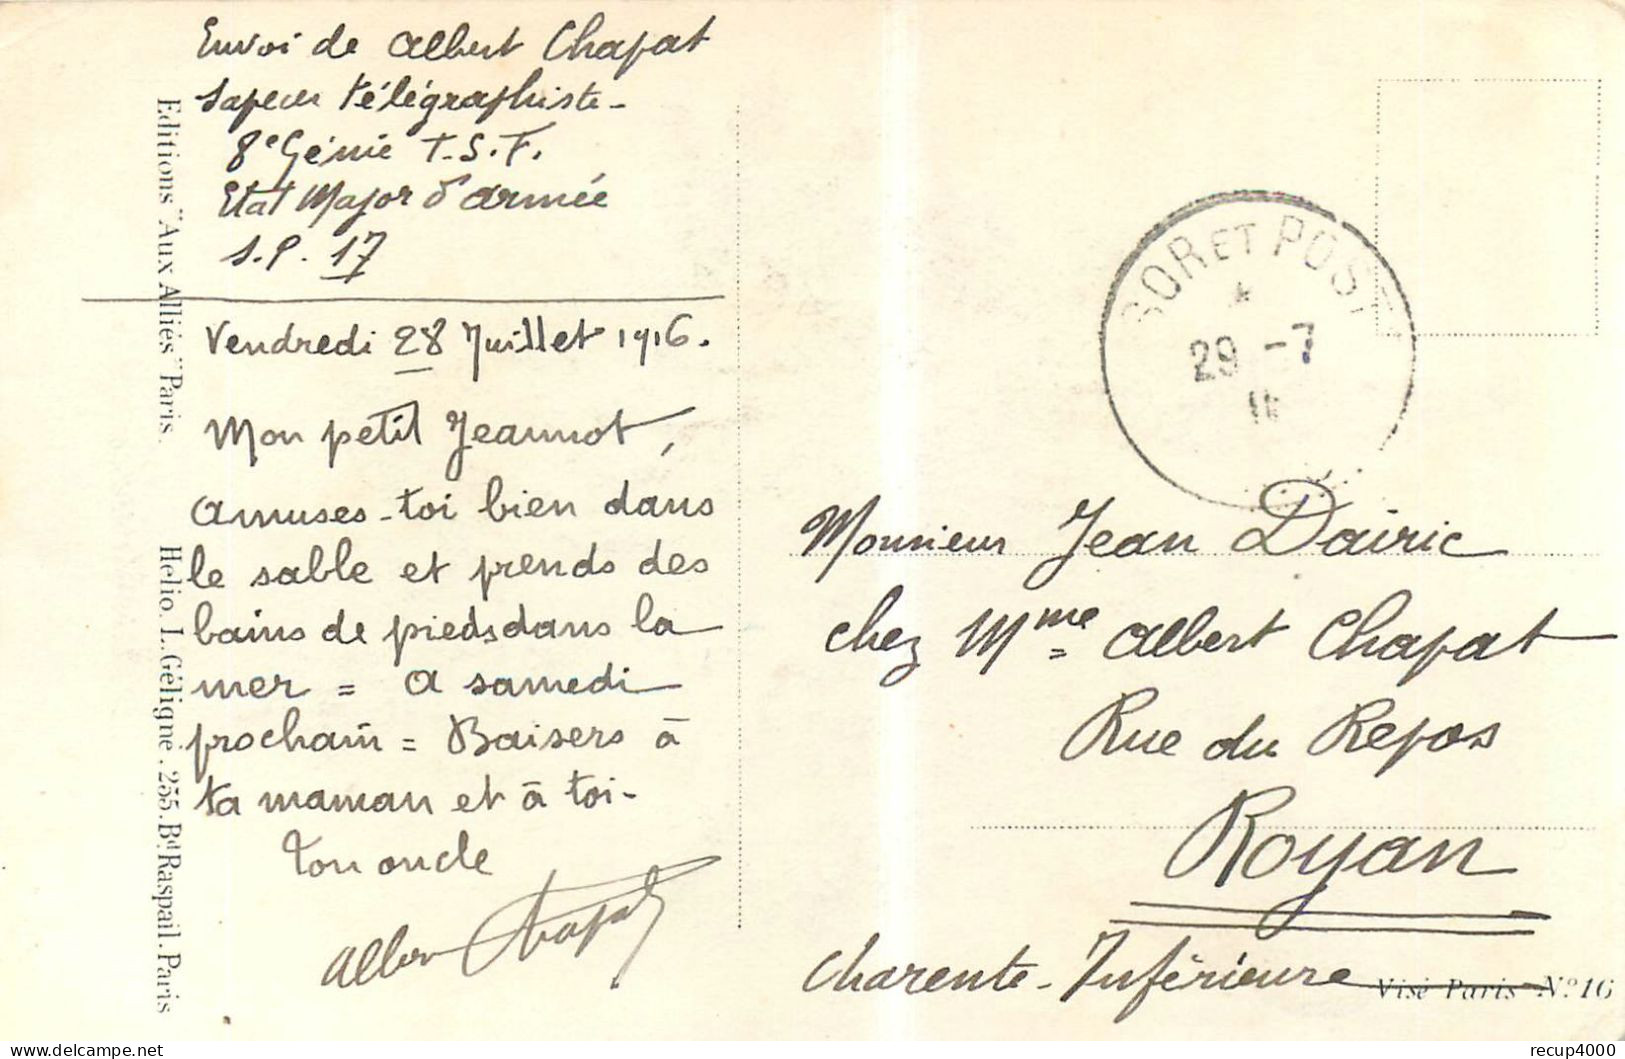 Envoi de Albert Chapat
Sapeur télégraphiste-
8e Génie T.S.F.
Etat Major d'armée
S.P. 17
Vendredi 28 Juillet 1916.
Mon petit Jeannot,
Amuses-toi bien dans
le sable et prends des
bains de pieds dans la
mer = A samedi
prochain = Baisers à
ta maman et à toi-
Ton oncle
Albert Chapat
Editions "Aux Alliés" Paris.
Helio. L. Géligné. 255. Bd Raspail. Paris
SOR ET POST
29 -7
Monsieur Jean Dairic
chez Mme Albert Chapat
Rue du Repos
Royan
Charente-Inférieure
Visé Paris Nº 16
recup4000